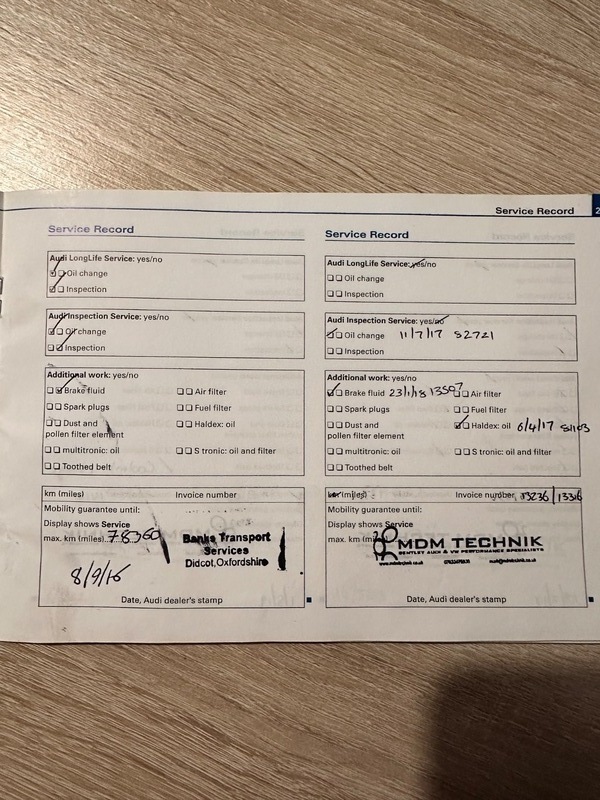 Service Record
2
Service Record
Audi LongLife Service: yes/no
Oil change
Inspection
Audi Inspection Service: yes/no
Oil change
Inspection
Additional work: yes/no
Brake fluid
Air filter
Spark plugs
Fuel filter
Dust and
pollen filter element
Haldex: oil
multitronic: oil
S tronic: oil and filter
Toothed belt
km (miles)
Invoice number
Mobility guarantee until:
Display shows Service
max. km (miles)..78360
Banks Transport
Services
Didcot, Oxfordshire
8/9/16
Date, Audi dealer's stamp
Service Record
Audi LongLife Service: yes/no
Oil change
Inspection
Audi Inspection Service: yes/no
Oil change 11/7/17 82721
Inspection
Additional work: yes/no
Brake fluid 23/1/18
Air filter
Spark plugs
Fuel filter
Dust and
pollen filter element
Haldex: oil 6/4/17
multitronic: oil
S tronic: oil and filter
Toothed belt
km (miles)
Invoice number
Mobility guarantee until:
Display shows Service
max. km
MDM TECHNIK
BENTLEY AUDI & VW PERFORMANCE SPECIALISTS
www.mdmtechnik.co.uk
Date, Audi dealer's stamp